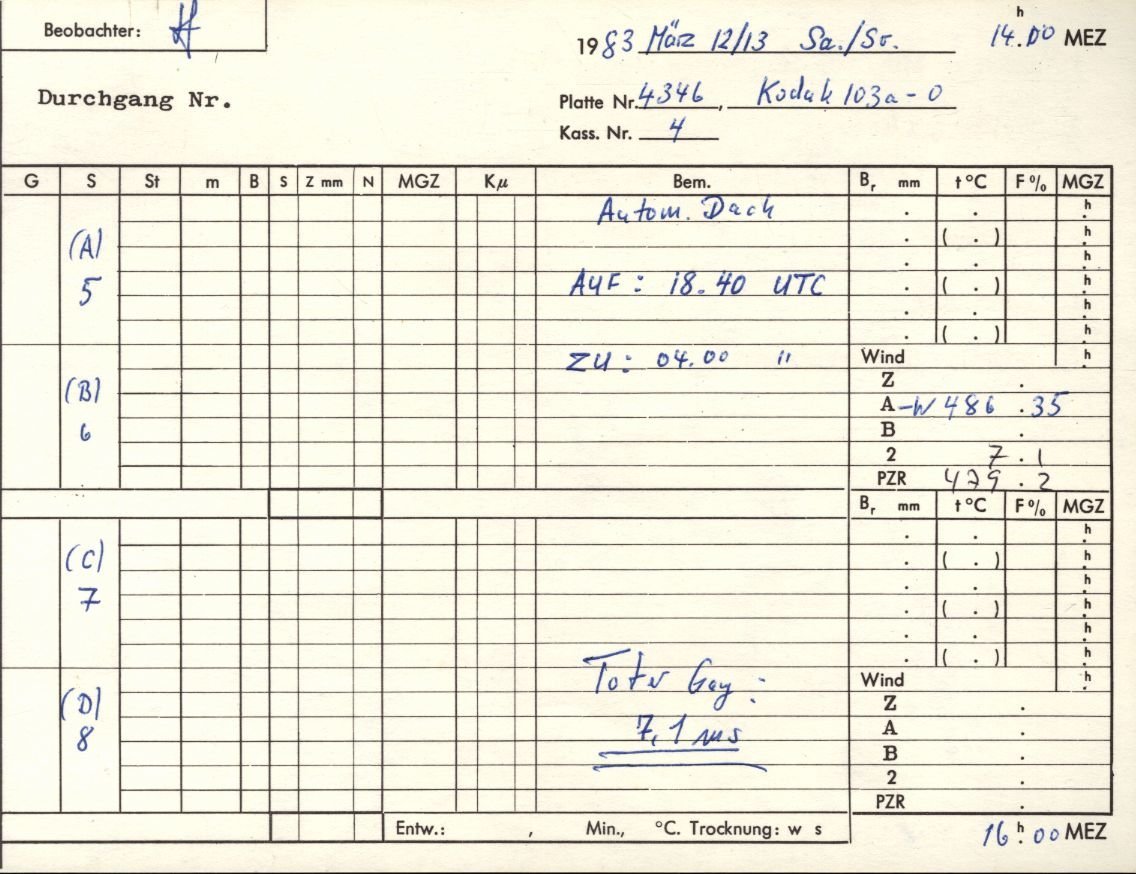 Beobachter:
1983 März 12/13 Sa./So. 14.ʰ00 MEZ
Durchgang Nr.
Platte Nr. 4346, Kodak 103a-O
Kass. Nr. 4
G S St m B S Z mm N MGZ Kμ Bem. Bᵣ mm t °C F % MGZ
Autom. Dach . . .ʰ
(A) . ( . ) .ʰ
. .ʰ
5 AUF: 18.40 UTC . ( . ) .ʰ
. .ʰ
. ( . ) .ʰ
ZU: 04.00 " Wind .ʰ
Z .
(B) A -W 486 .35
6 B .
2 7.1
PZR 479.2
Bᵣ mm t °C F % MGZ
. . .ʰ
(C) . ( . ) .ʰ
. .ʰ
7 . ( . ) .ʰ
. .ʰ
. ( . ) .ʰ
Toter Gang: Wind .ʰ
(D) Z .
8 7,1 ms A .
B .
2 .
PZR .
Entw.: , Min., °C. Trocknung: w s
16.ʰ00 MEZ